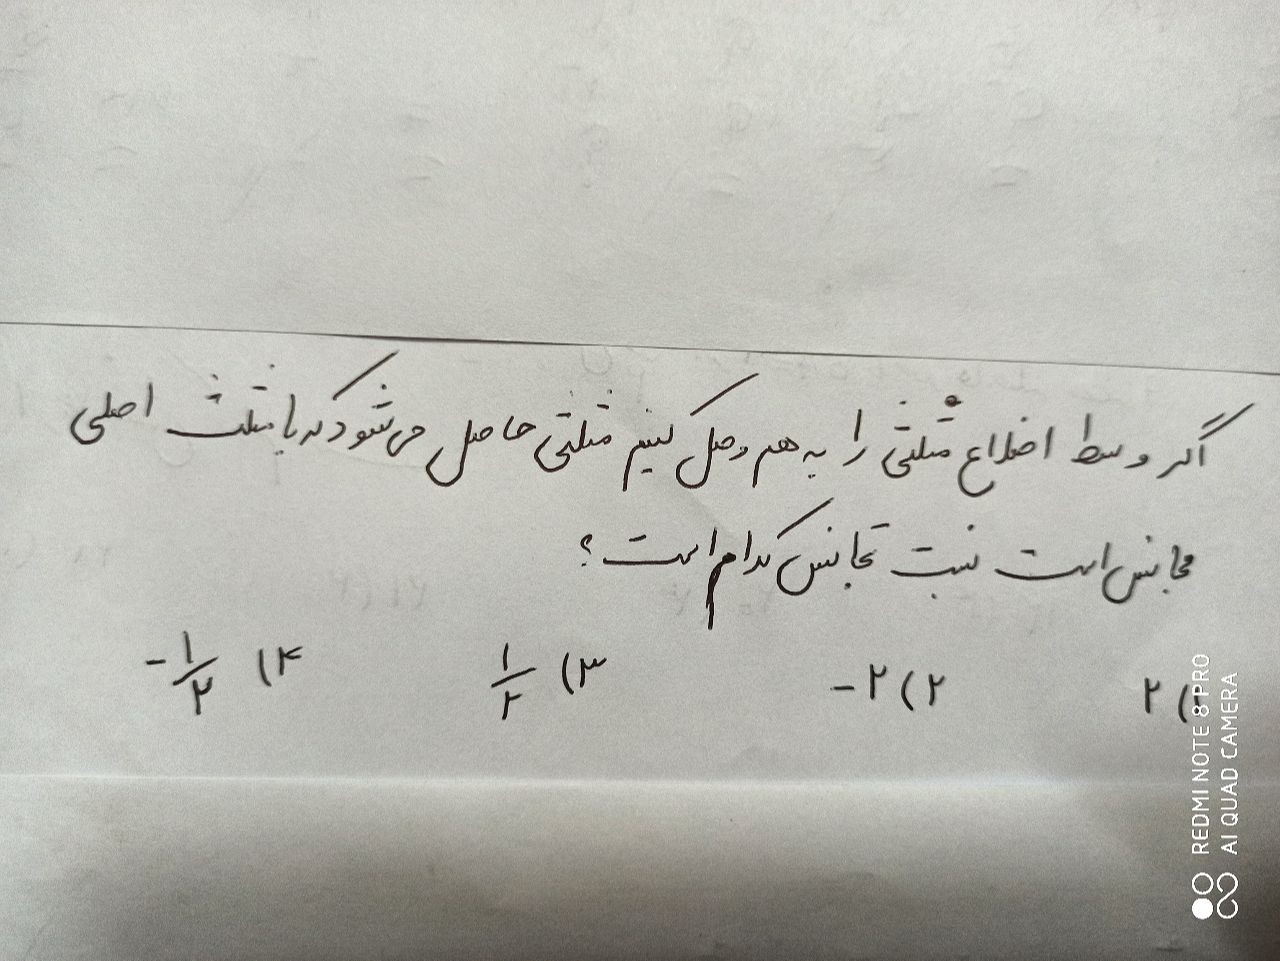 اگر وسط اضلاع مثلثی را به هم وصل کنیم مثلثی حاصل می‌شود که با مثلث اصلی
مجانس است نسبت تجانس کدام است؟
۱) ۲ ۲) -۲ ۳) ۱/۲ ۴) -۱/۲
REDMI NOTE 8 PRO
AI QUAD CAMERA